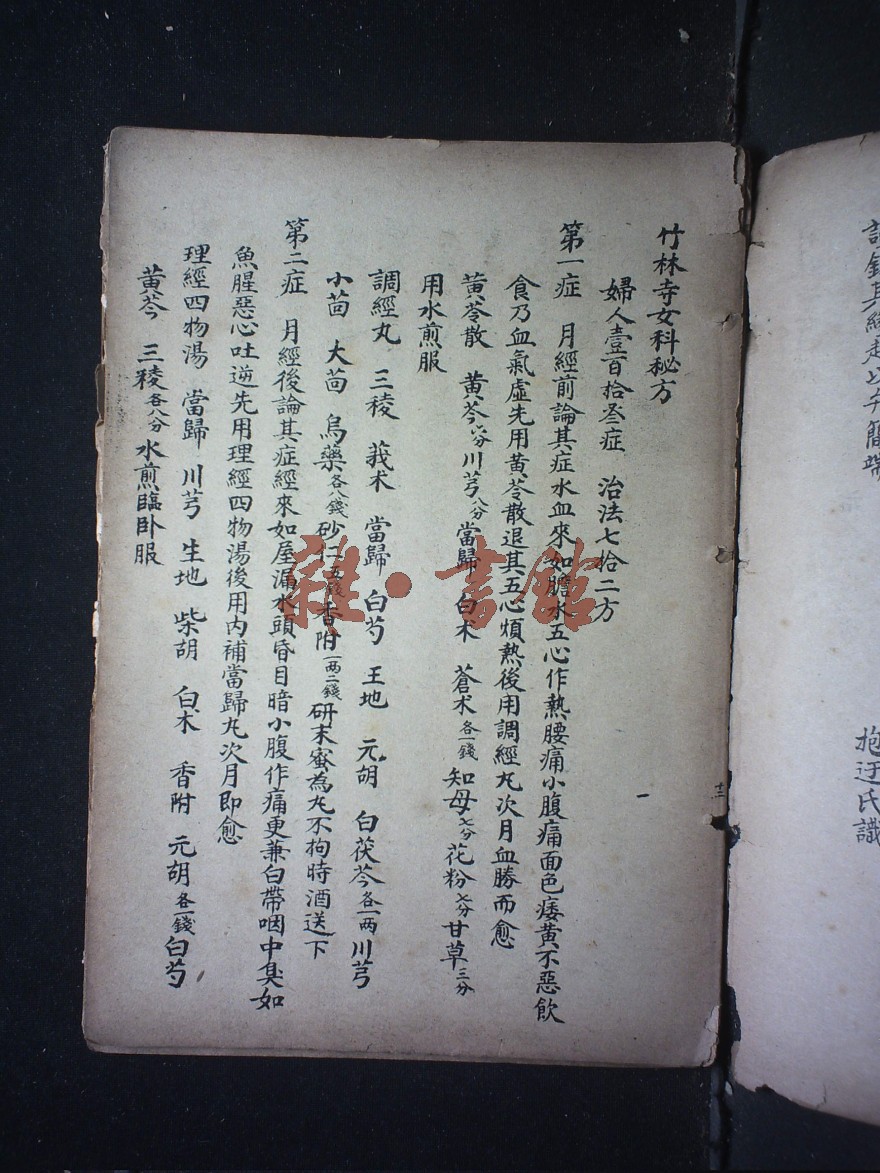 竹林寺女科秘方
婦人壹百拾叁症 治法七拾二方
第一症 月經前論其症水血來如膽水五心作熱腰痛小腹痛面色痿黃不惡飲
食乃血氣虛先用黃苓散退其五心煩熱後用調經丸次月血勝而愈
黃苓散 黃芩 川芎八分 當歸 白术 蒼术各一錢 知母七分 花粉七分 甘草三分
用水煎服
調經丸 三稜 莪术 當歸 白芍 王地 元胡 白茯苓各一兩 川芎
小茴 大茴 烏藥各八錢 砂仁五錢 香附一兩二錢 研末蜜為丸不拘時酒送下
第二症 月經後論其症經來如屋漏水頭昏目暗小腹作痛更兼白帶咽中臭如
魚腥惡心吐逆先用理經四物湯後用內補當歸丸次月即愈
理經四物湯 當歸 川芎 生地 柴胡 白术 香附 元胡各一錢 白芍
黃芩 三稜各八分 水煎臨卧服
一
抱迂氏識
雜·書館